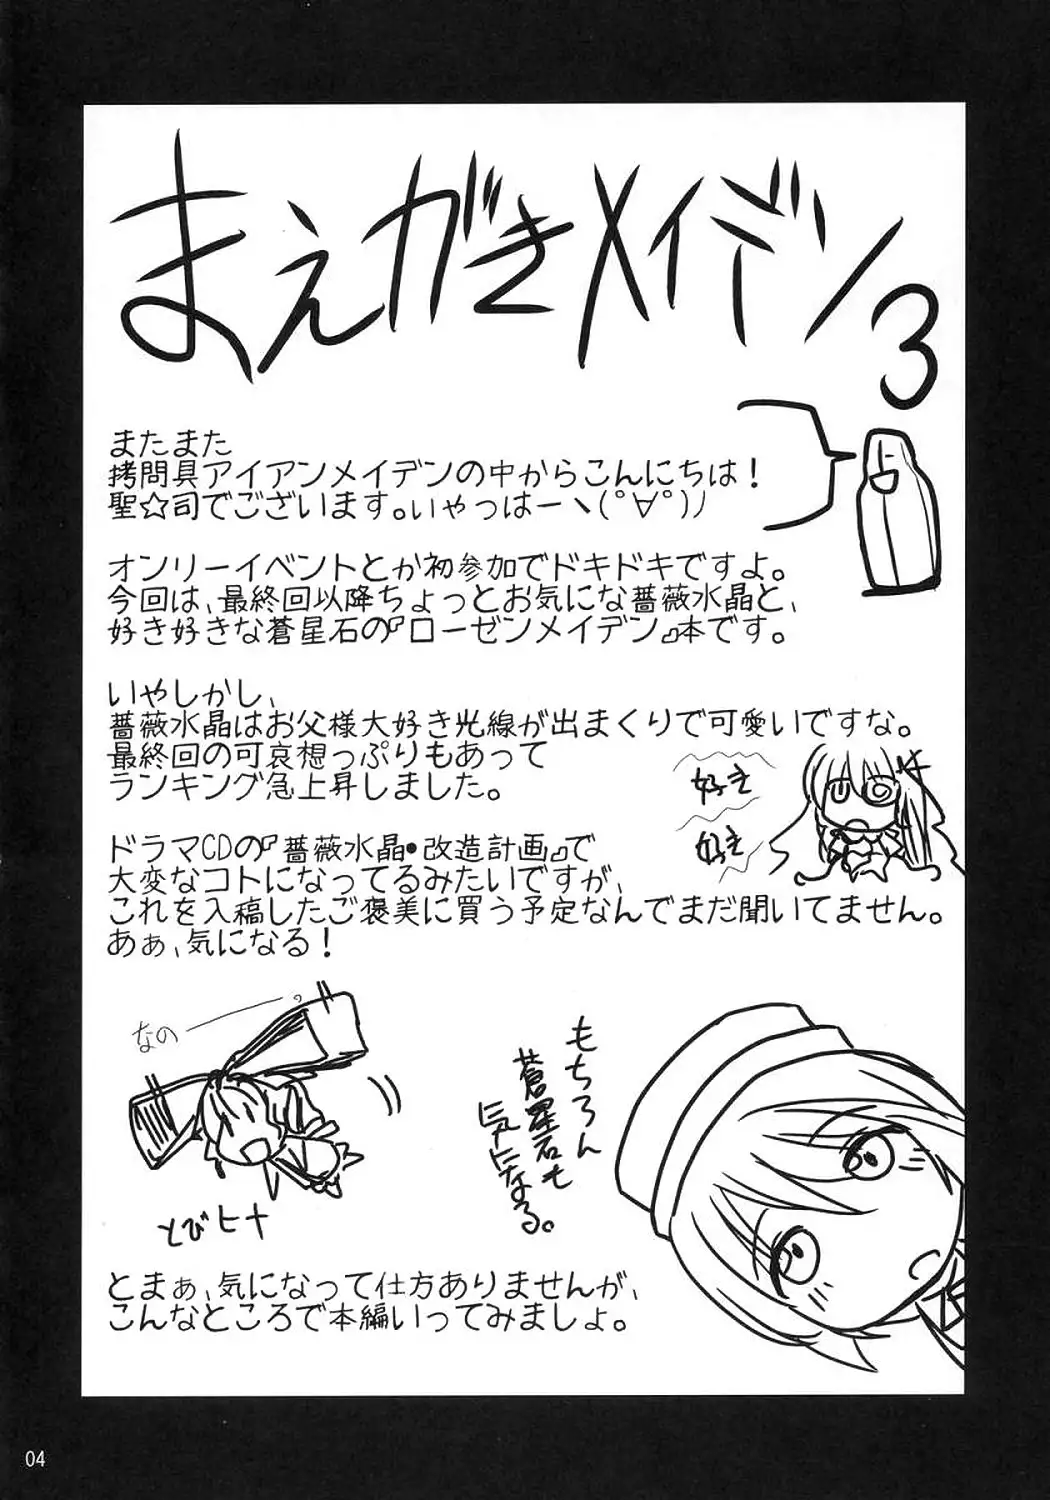 まえがきメイデン3
またまた
拷問具アイアンメイデンの中からこんにちは!
聖☆司でございます。いやっはーヽ(ﾟ∀ﾟ)ﾉ
オンリーイベントとか初参加でドキドキですよ。
今回は、最終回以降ちょっとお気にな薔薇水晶と、
好き好きな蒼星石の『ローゼンメイデン』本です。
いやしかし、
薔薇水晶はお父様大好き光線が出まくりで可愛いですな。
最終回の可哀想っぷりもあって
ランキング急上昇しました。
好き
好き
ドラマCDの『薔薇水晶・改造計画』で
大変なコトになってるみたいですが、
これを入稿したご褒美に買う予定なんでまだ聞いてません。
あぁ、気になる!
なのー
とびヒナ
もちろん
蒼星石も
気になる。
とまぁ、気になって仕方ありませんが、
こんなところで本編いってみましょ。
04